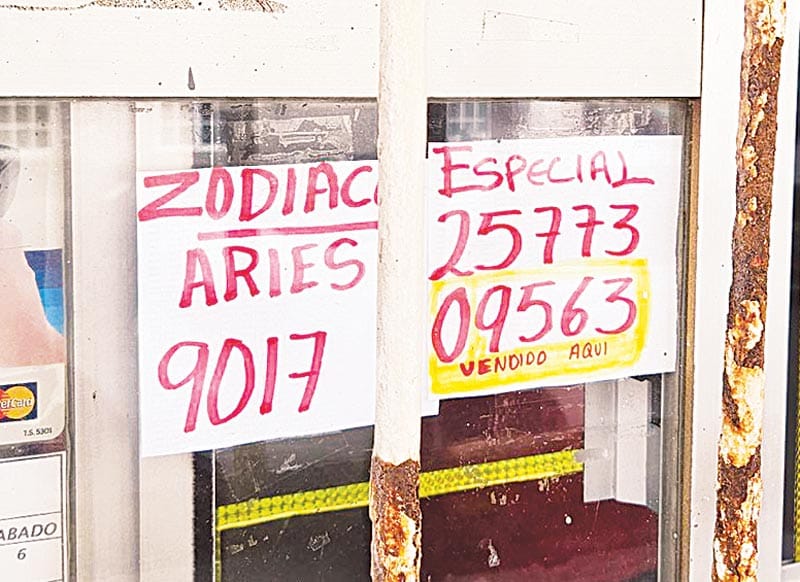 ZODIAC
ARIES
9017
ESPECIAL
25773
09563
VENDIDO AQUI
erCard
T.S. 5301
ABADO
6